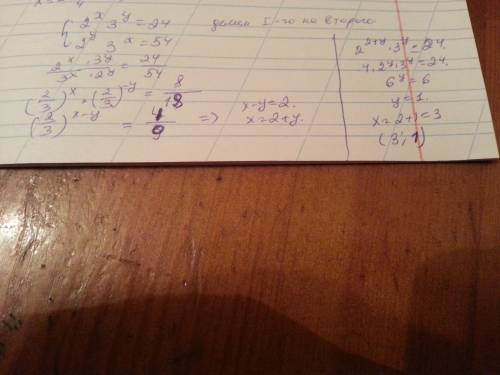 { 2^x 3^y = 24 делим I-го на второго
2^y 3^x = 54
2^x · 3^y / 3^x · 2^y = 24/54
(2/3)^x · (2/3)^-y = 8/18
(2/3)^x-y = 4/9 => x-y=2.
x=2+y.
2^2+y · 3^y = 24.
4 · 2^y · 3^y = 24.
6^y = 6
y = 1.
x = 2+1 = 3
(3; 1)